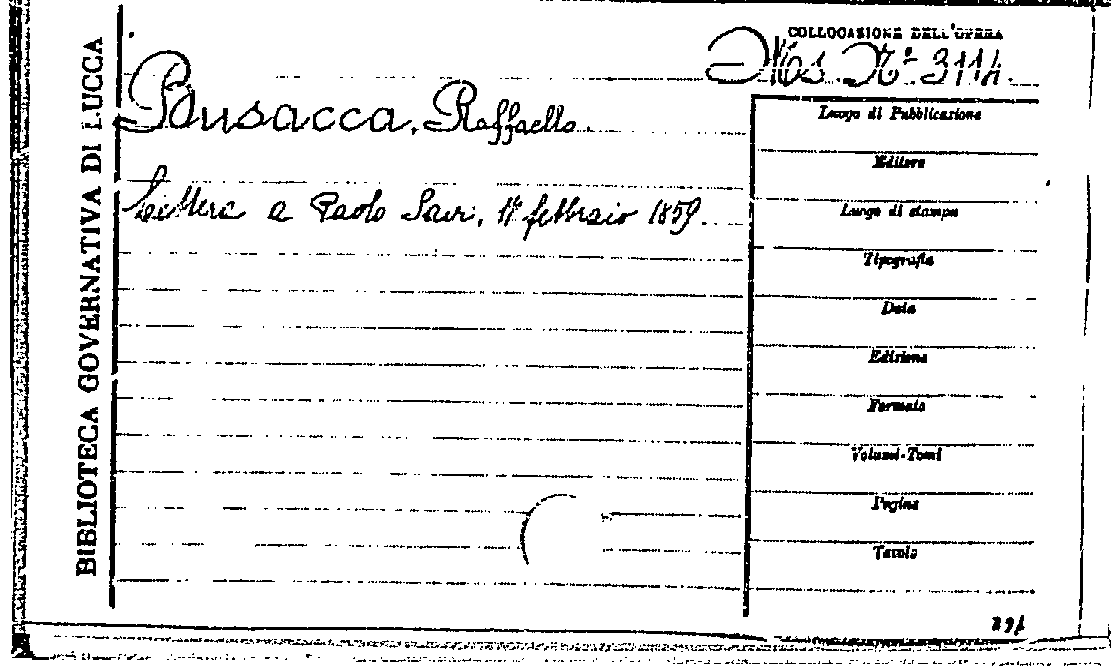 BIBLIOTECA GOVERNATIVA DI LUCCA
COLLOCASIONE DELL'OPERA
Mss. N.º 3114.
Busacca, Raffaello.
Lettera a Paolo Savi, febbraio 1859.
Luogo di Pubblicazione
Editore
Luogo di stampa
Tipografia
Data
Edizione
Formato
Volumi-Tomi
Pagine
Tavole